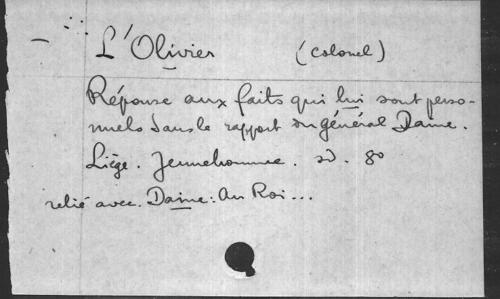 L'Olivier (Colonel)
Réponse aux faits qui lui sont perso-
nnels dans le rapport du général Daine.
Liège. Jeunehomme. sd. 8o
relié avec. Daine: Au Roi...